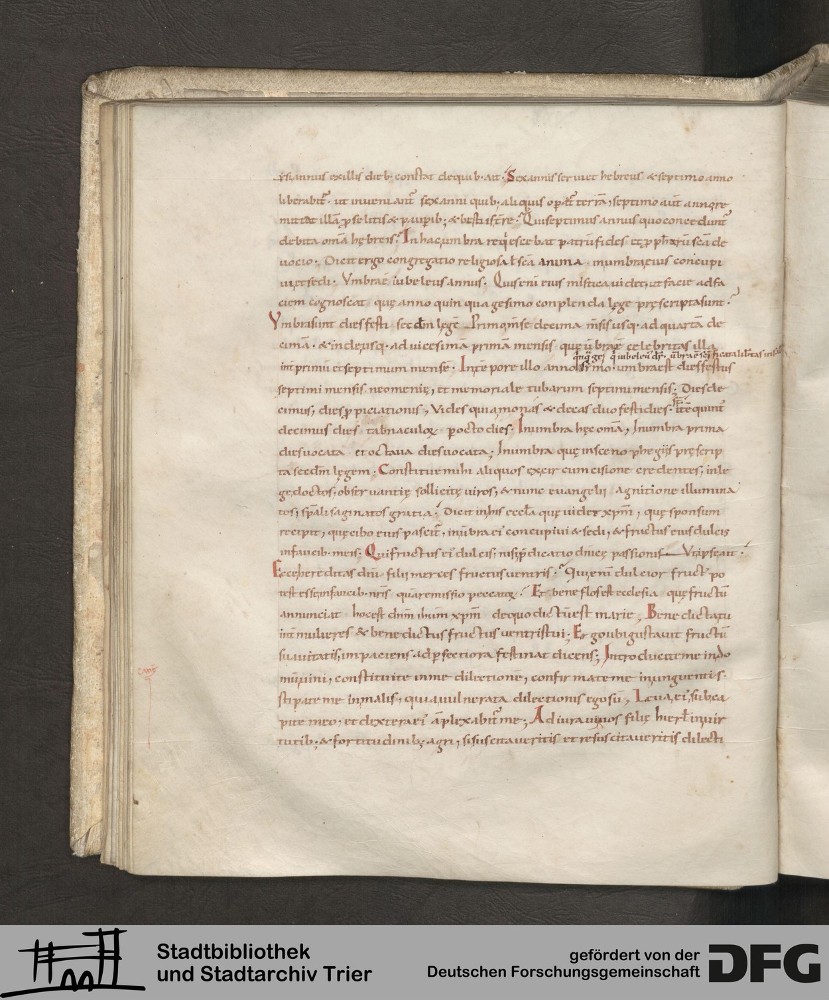 annus ex illis dieb; constat dequib· ait· Sex annis serviet hebreus & septimo anno
liberabit᷑· ut inveniant᷑ sex anni quib; aliquis operat᷑ terrā, septimo aut̄ anno re
mittat illā pselitis & paupib; & bestiis
debita omīa hebreis· In hac umbra requiescebat patrū fides et pphetarū scā de
uocio· Dicit ergo congregatio religiosa scā anima· in umbra eius concupi
ui et sedi· Vmbra ē iubeleus annus·
ciem cognoscat quę anno quinquagesimo conplenda lege pręscripta sunt·
Vmbra sunt dies festi secdm lęgē
cima· & indeusq· ad vicesimā primā mensis quę umbrę celebritas illa
int primū et septimum mensē· In tempore illo umbra est dies festus
septimi mensis neomenię, et memoriale tubarum septimi mensis· Dies de
cimus, dies ppiciationis, Vides quia monas & decas duo festi dies·
decimus dies tabnaculoꝝ p octo dies· In umbra hęc omīa, In umbra prima
dies uocata et octaua dies uocata; In umbra quę in scenophegiis pręscrip
ta secdm lęgem· Constitue mihi aliquos ex circumcisione credentes, in le
ge doctos, obseruantię sollicitę uiros, & nunc euangelii agnitione illumina
tos, spali saginatos gratia· Dicit in his eccla quę uidit xpm, quę sponsum
recipit, quę cibo eius pascit᷑, in ūbra ei concupiui & sedi, & fructus eius dulcis
in faucib· meis· Qui fructus ei dulcis, nisi pdicatio dnicę passionis
Ecce hereditas dni filii merces fructus uentris· Quis enī dulcior fruct᷑ po
test esse in faucib· nris quā remissio peccatoꝝ· Et bene flos est ecclesia quę fructū
annunciat hoc est dnm ihum xpm de quo dictū est marię, Benedicta tu
int mulieres & benedictus fructus uentris tui; Ergo ubi gustauit fructū
suauitatis, inpaciens ad pfectiora festinat dicens; Introducite me in do
mū uini, constituite in me dilectionē, confirmate me in unguentis·
stipate me in malis, quia uulnerata dilectionis ego sū, Leua ei, sub ca
pite meo· et dextera ei āplexabit᷑ me; Adiuraui uos filię hierlm in uir
tutib· & fortitudinib; agri, si suscitaueritis et resuscitaueritis dilecti
Stadtbibliothek
und Stadtarchiv Trier
gefördert von der
Deutschen Forschungsgemeinschaft
DFG